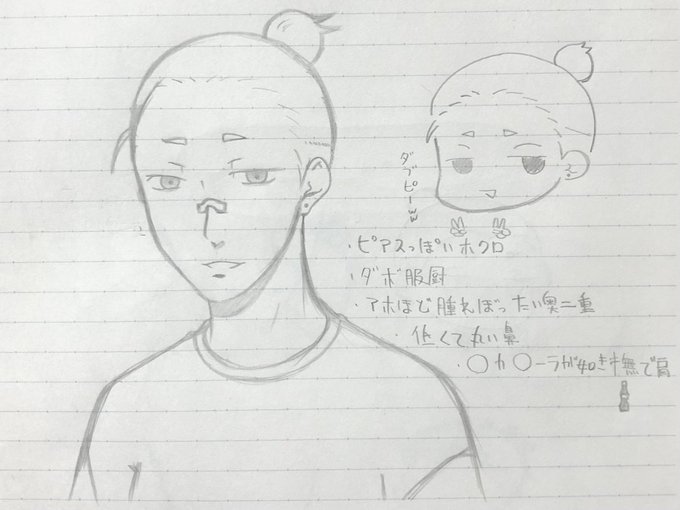 ダブピーww
・ピアスっぽいホクロ
・ダボ服厨
・アホほど腫れぼったい奥二重
・低くて丸い鼻
・〇カ〇ーラが如き撫で肩